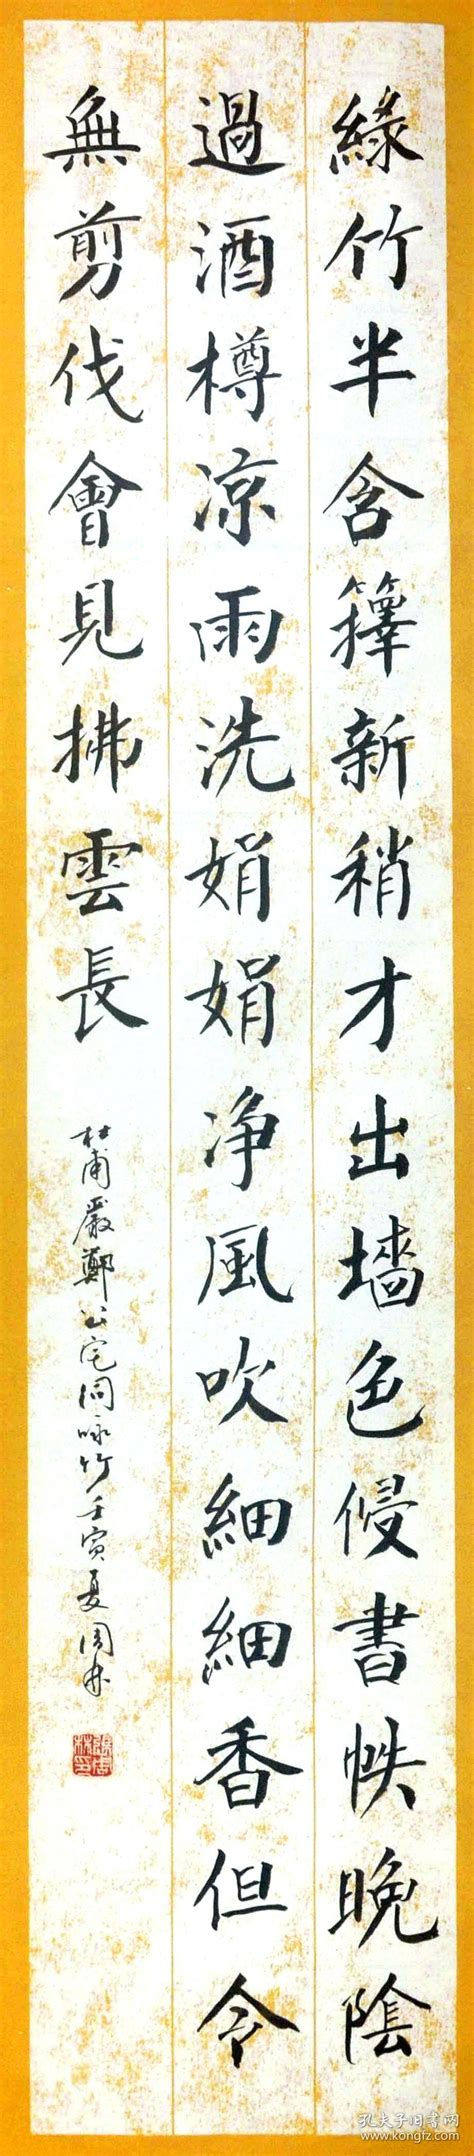 綠竹半含籜新稍才出墻色侵書帙晚陰
過酒樽涼雨洗娟娟净風吹細細香但令
無剪伐會見拂雲長
杜甫嚴鄭公宅同咏竹壬寅夏周林
孔夫子旧书网
www.kongfz.com